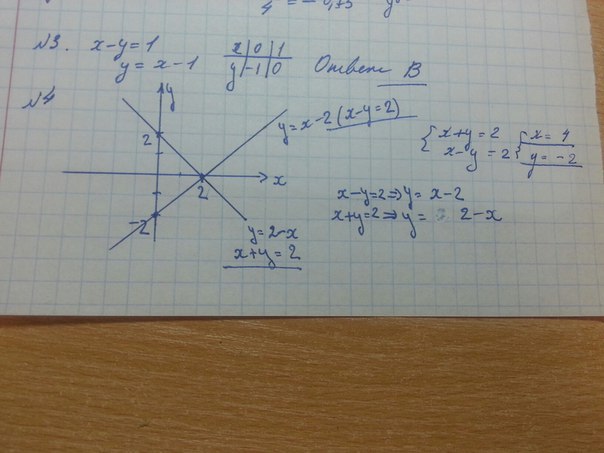 №3. x-y=1
y = x-1
x | 0 | 1
y | -1 | 0
Ответ В
№4
y
2
y=x-2 (x-y=2)
x
2
-2
y=2-x
x+y=2
{ x+y=2
x-y=2
{ x=4
y=-2
x-y=2⇒y=x-2
x+y=2⇒y= 2-x